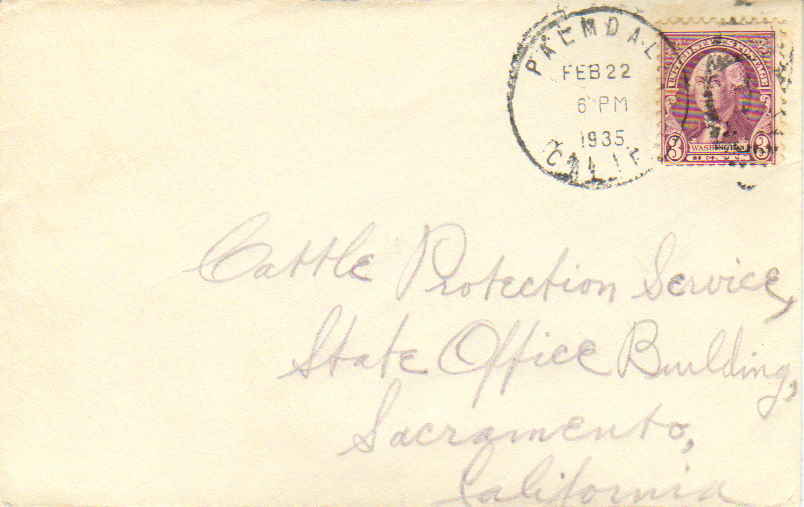 PALMDALE
FEB 22
6 PM
1935
CALIF
UNITED STATES POSTAGE
WASHINGTON
3 3
Cattle Protection Service,
State Office Building,
Sacramento,
California